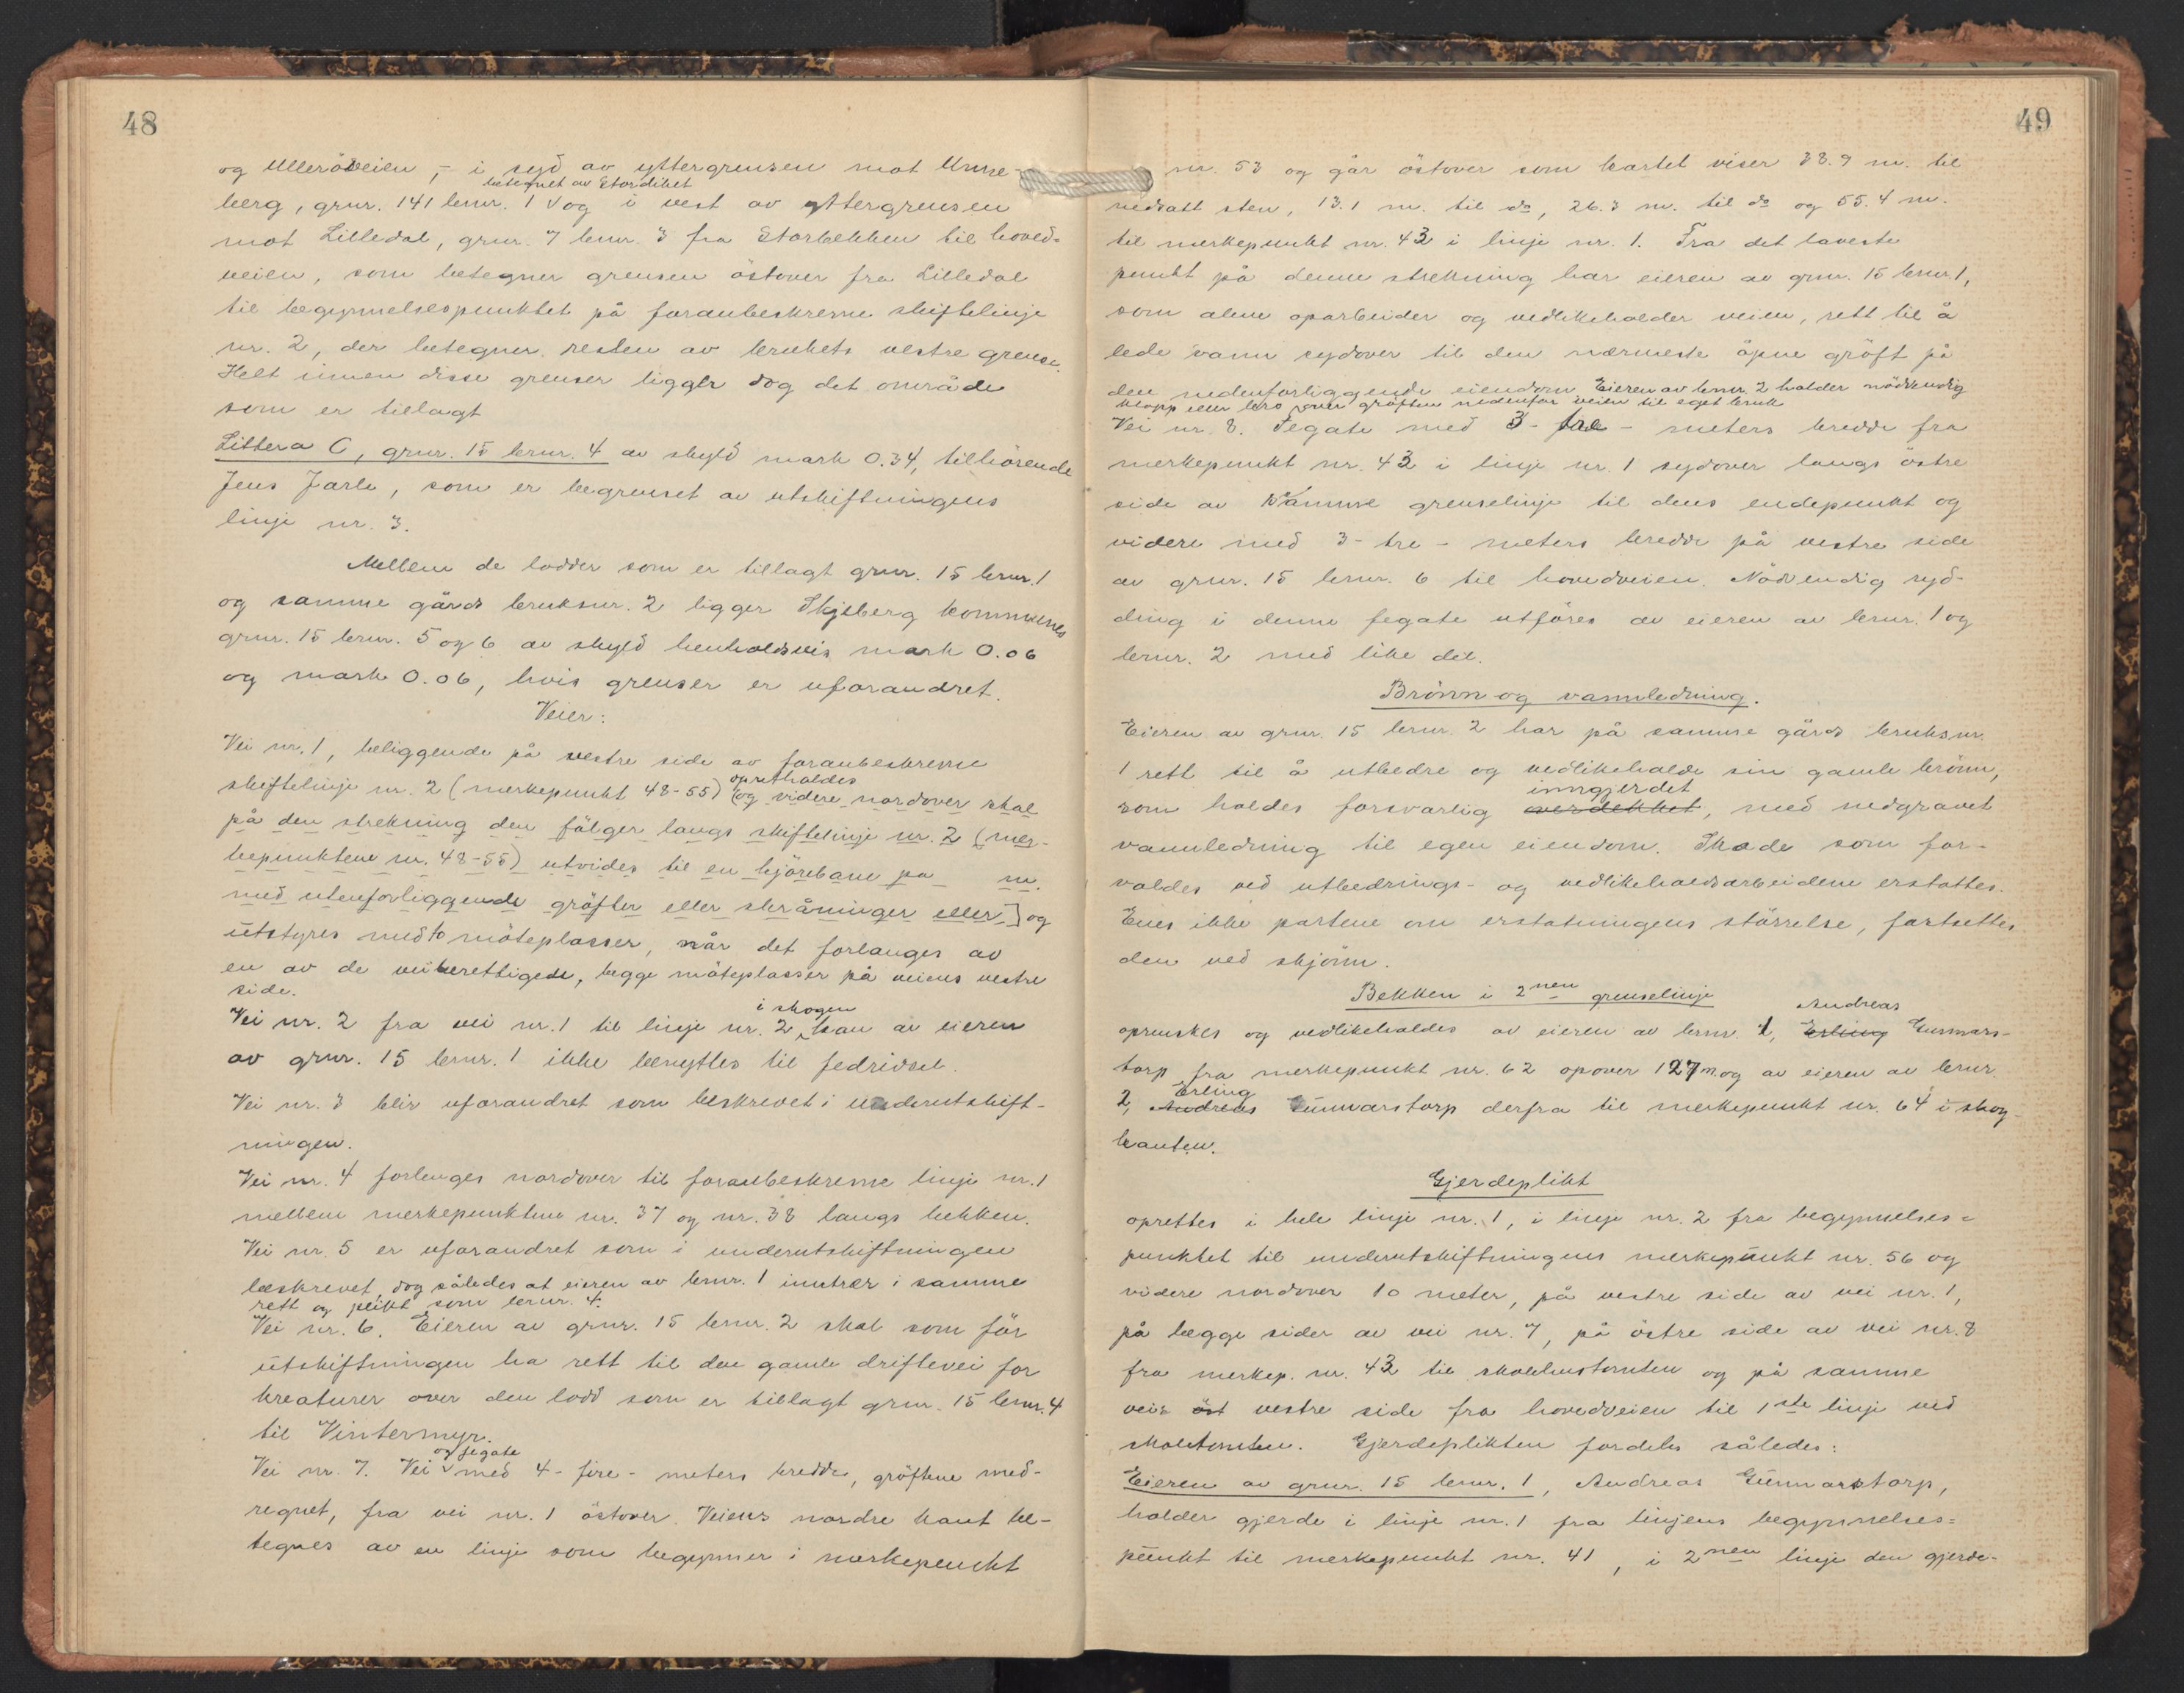 48
og Ulleröveien, - i syd av yttergrensen mot Unne-
betegnet av Stordiket
berg, grnr. 141 brnr. 1 og i vest av yttergrensen
mot Lilledal, grnr. 7 brnr. 3 fra Storbekken til hoved=
veien, som betegner grensen östover fra Lilledal
til begynnelsespunktet på foranbeskrevne skiftelinje
nr. 2, der betegner resten av brukets vestre grense.
Helt innen disse grenser ligger dog det område
som er tillagt
Littera C, grnr. 15 brnr. 4 av skyld mark 0.34, tilhörende
Jens Jarle, som er begrenset av utskiftningens
linje nr. 3.
Mellem de lodder som er tillagt grnr. 15 brnr. 1
og samme gårds bruksnr. 2 ligger Skjeberg kommunes
grnr. 15 brnr. 5 og 6 av skyld henholdsvis mark 0.06
og mark 0.06, hvis grenser er uforandret.
Veier:
Vei nr. 1, beliggende på vestre side av foranbeskrevne
opretholdes
skiftelinje nr. 2 (merkepunkt 48-55) (og videre nordover skal
på den strekning den fölger langs skiftelinje nr. 2 (mer-
kepunktene nr. 48-55) utvides til en kjörebane på m.
med utenforliggende gröfter eller skråninger eller] og
utstyres med to möteplasser, når det forlanges av
en av de veiberettigede, begge möteplasser på veiens vestre
side.
i skogen
Vei nr. 2 fra vei nr. 1 til linje nr. 2 kan av eieren
av grnr. 15 brnr. 1 ikke benyttes til fedrivsel.
Vei nr. 3 blir uforandret som beskrevet i underutskift-
ningen.
Vei nr. 4 forlenges nordover til foranbeskrevne linje nr. 1
mellem merkepunktene nr. 37 og nr. 38 langs bekken.
Vei nr. 5 er uforandret som i underutskiftningen
beskrevet, dog således at eieren av brnr. 1 inntrer i samme
rett og plikt som brnr. 4.
Vei nr. 6. Eieren av grnr. 15 brnr. 2 skal som för
utskiftningen ha rett til den gamle driftevei for
kreaturer over den lodd som er tillagt grnr. 15 brnr. 4
til Vintermyr.
og fegate
Vei nr. 7. Vei med 4- fire - meters bredde, gröftene med-
regnet, fra vei nr. 1 östover. Veiens nordre kant be-
tegnes av en linje som begynner i merkepunkt
49
nr. 53 og går östover som kartet viser 38.9 m. til
nedsatt sten, 13.1 m. til do, 26.3 m. til do og 55.4 m.
til merkepunkt nr. 43 i linje nr. 1. Fra det laveste
punkt på denne strekning har eieren av grnr. 15 brnr. 1,
som alene oparbeider og vedlikeholder veien, rett til å
lede vann sydover til den nærmeste åpne gröft på
den nedenforliggende eiendom. Eieren av brnr. 2 holder nödvendig
klopp eller bro over gröften nedenfor veien til eget bruk
Vei nr. 8. Fegate med 3- tre - meters bredde fra
merkepunkt nr. 43 i linje nr. 1 sydover langs östre
side av samme grenselinje til dens endepunkt og
videre med 3- tre - meters bredde på vestre side
av grnr. 15 brnr. 6 til hovedveien. Nödvendig ryd-
ding i denne fegate utföres av eieren av brnr. 1 og
brnr. 2 med like del.
Brönn og vannledning.
Eieren av grnr. 15 brnr. 2 har på samme gårds bruksnr.
1 rett til å utbedre og vedlikeholde sin gamle brönn,
inngjerdet
som holdes forsvarlig overdekket, med nedgravet
vannledning til egen eiendom. Skade som for-
voldes ved utbedrings- og vedlikeholdsarbeidene erstattes.
Enes ikke partene om erstatningens störrelse, fastsettes
den ved skjönn.
Bekken i 2nen grenselinje
Andreas
oprenskes og vedlikeholdes av eieren av brnr. 1, Erling Gunnars-
torp fra merkepunkt nr. 62 opover 127 m og av eieren av brnr.
Erling
2, Andreas Gunnarstorp derfra til merkepunkt nr. 64 i skog-
kanten.
Gjerdeplikt
oprettes i hele linje nr. 1, i linje nr. 2 fra begynnelses=
punktet til underutskiftningens merkepunkt nr. 56 og
videre nordover 10 meter, på vestre side av vei nr. 1,
på begge sider av vei nr. 7, på östre side av vei nr. 8
fra merkep. nr. 43 til skolehustomten og på samme
veis öst vestre side fra hovedveien til 1ste linje ved
skoletomten. Gjerdeplikten fordeles således:
Eieren av grnr. 15 brnr. 1, Andreas Gunnarstorp,
holder gjerde i linje nr. 1 fra linjens begynnelses=
punkt til merkepunkt nr. 41, i 2nen linje den gjerde-